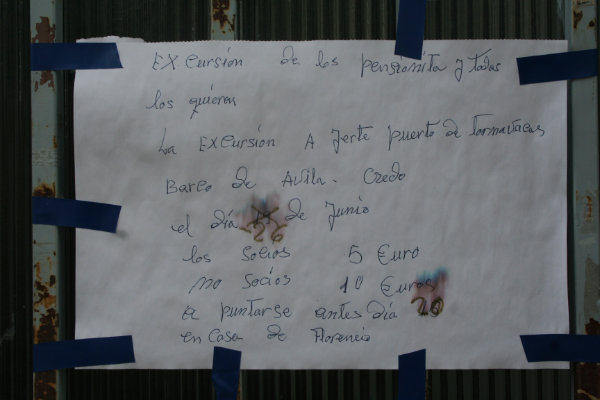 EXcursión de los pensionita y todos
los quieran
La EXcursión A Jerte puerto de tornavacas
Barco de Avila - Credo
el día 26 de Junio
los Socios 5 Euro
no Socios 10 Euros
a puntarse antes día 20
en Casa de Florencio